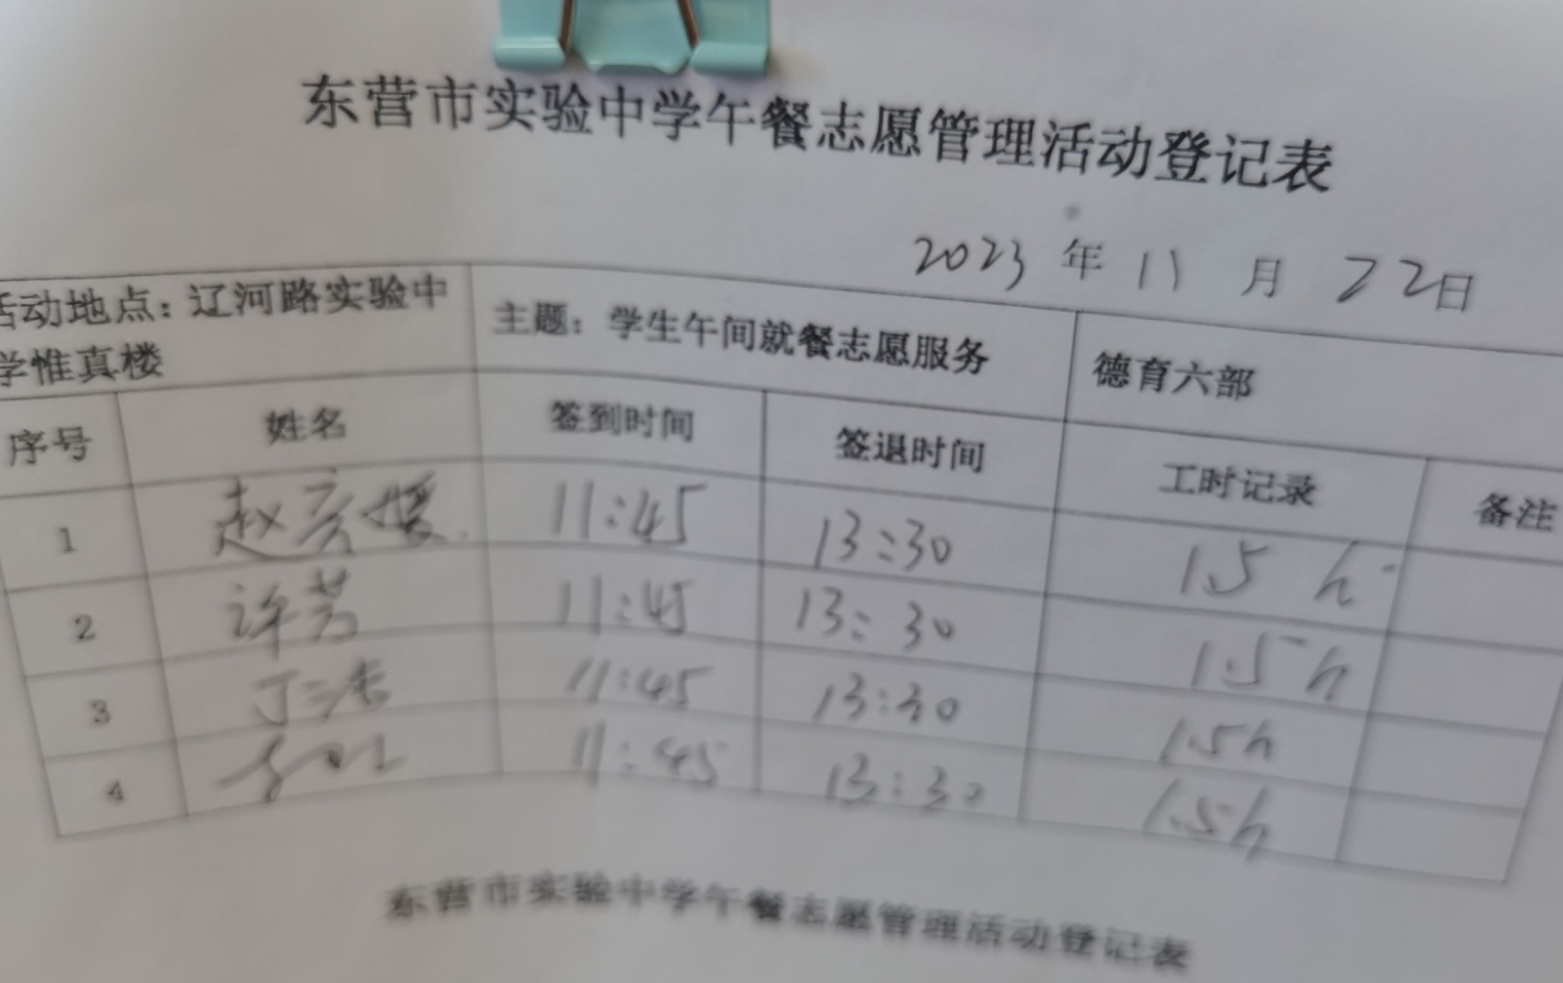 东营市实验中学午餐志愿管理活动登记表
2023 年 11 月 22日
活动地点：辽河路实验中 主题：学生午间就餐志愿服务 德育六部
学惟真楼
序号 姓名 签到时间 签退时间 工时记录 备注
1 赵彦媛 11:45 13:30 1.5 h
2 许芳 11:45 13:30 1.5 h
3 11:45 13:30 1.5h
4 11:45 13:30 1.5h
东营市实验中学午餐志愿管理活动登记表